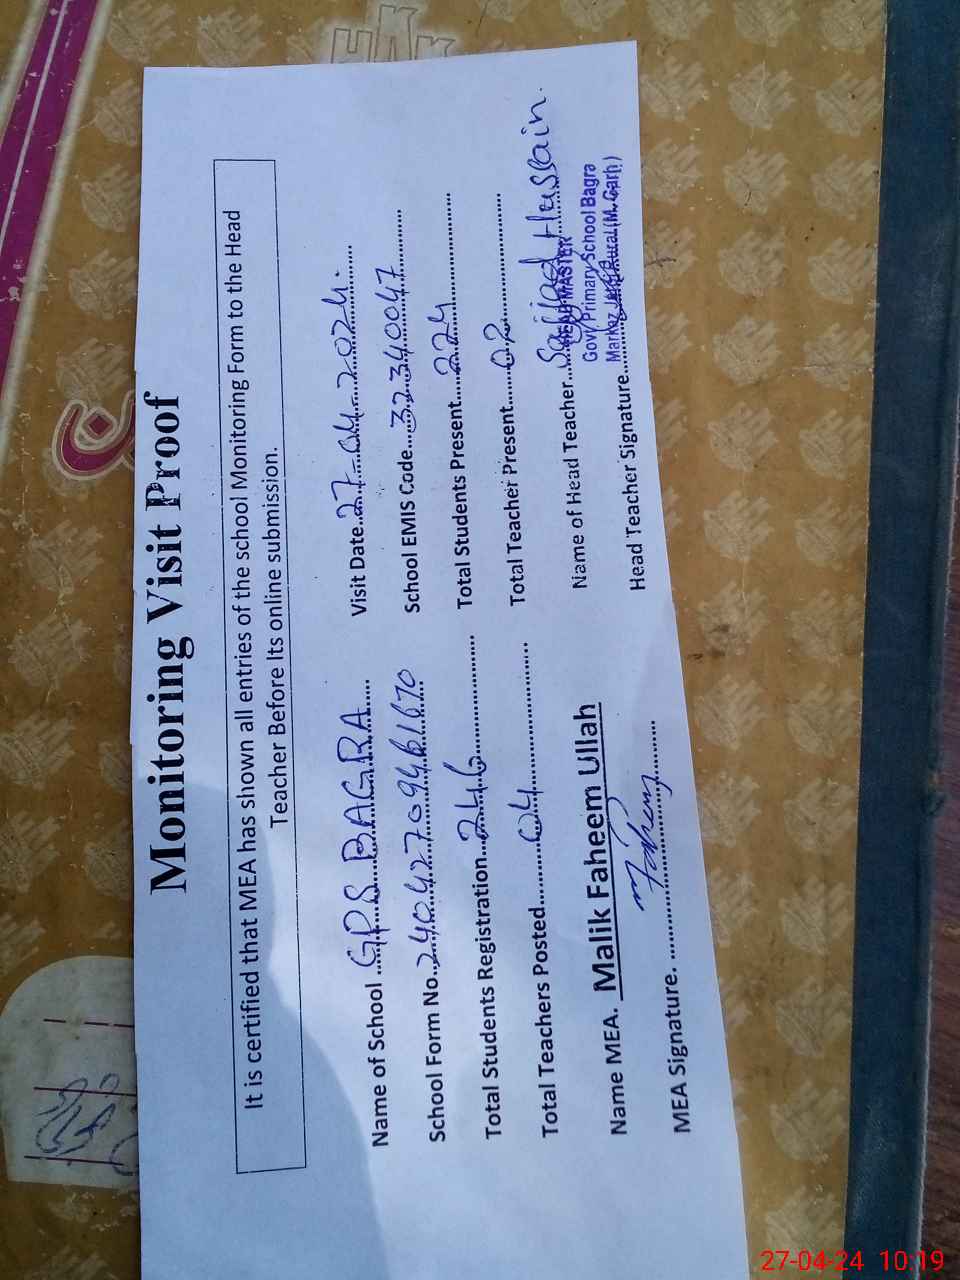 HAK
Monitoring Visit Proof
It is certified that MEA has shown all entries of the school Monitoring Form to the Head
Teacher Before Its online submission.
Name of School GPS BAGRA Visit Date 27-04-2024.
School Form No. 24042709461670 School EMIS Code 32340047
Total Students Registration 246 Total Students Present 224
Total Teachers Posted 04 Total Teacher Present 02
Name MEA. Malik Faheem Ullah Name of Head Teacher Sajjad Hussain.
HEAD MASTER
Govt. Primary School Bagra
Markaz Rural (M. Garh)
MEA Signature. Faheem Head Teacher Signature
27-04-24 10:19